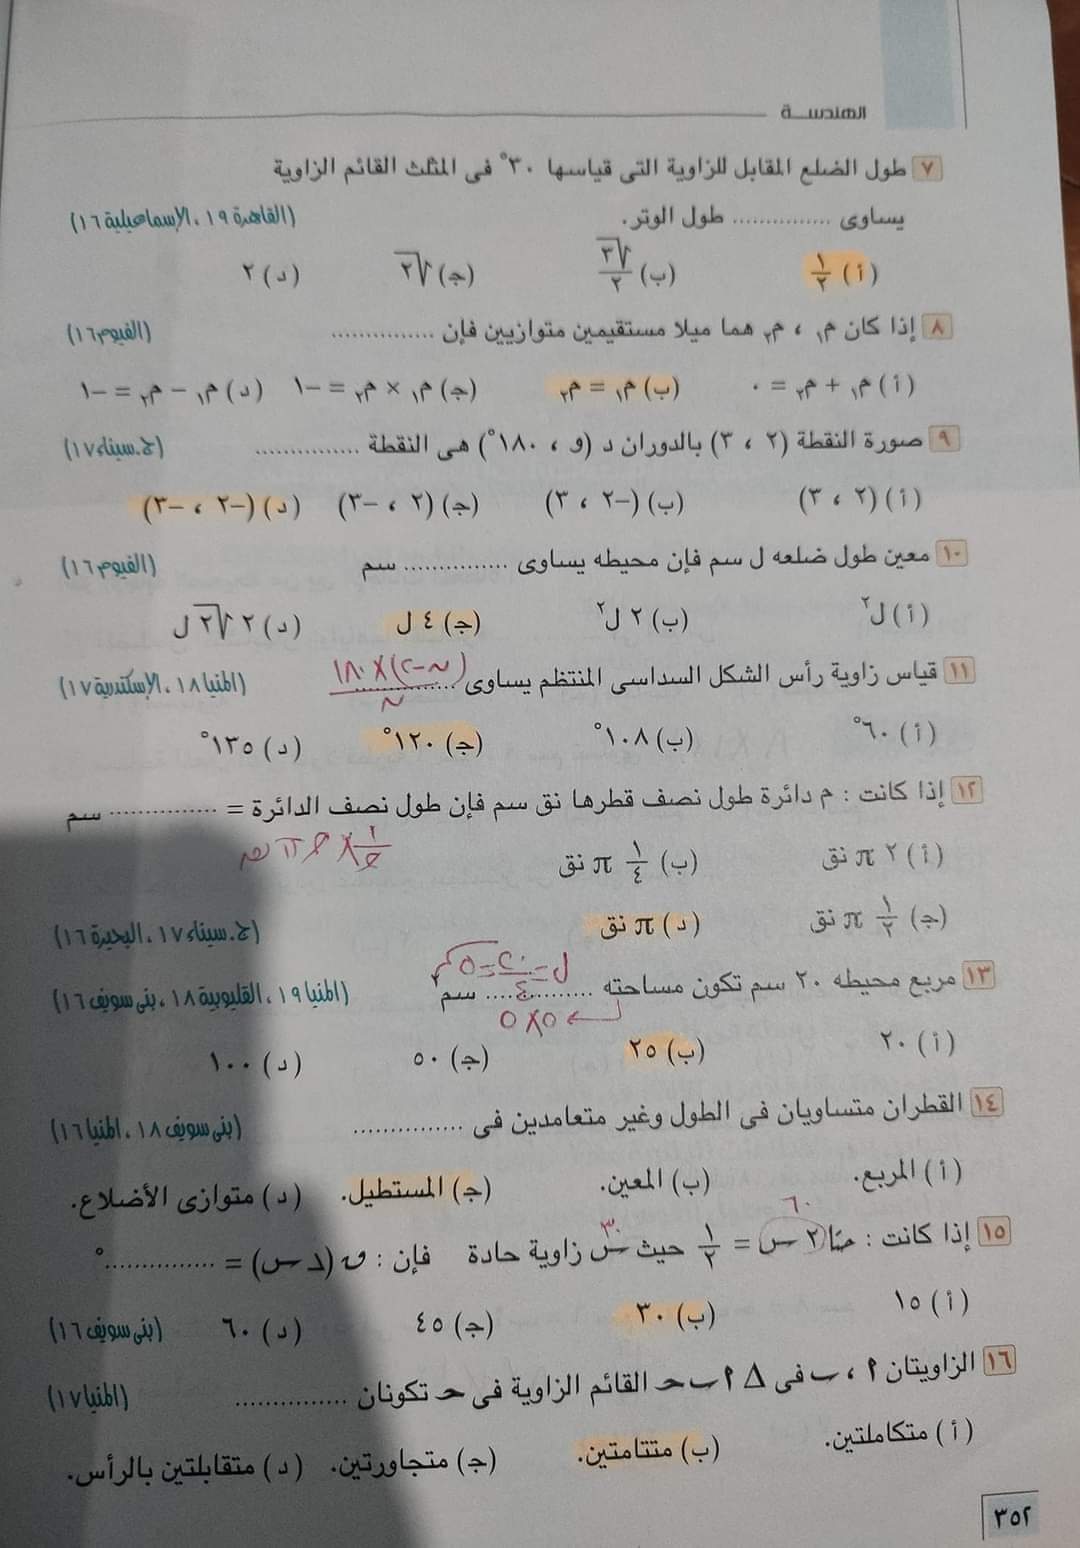 الهندسة
٧ طول الضلع المقابل للزاوية التى قياسها ٣٠° فى المثلث القائم الزاوية
يساوى ............... طول الوتر. (القاهرة ١٩ ، الإسماعيلية ١٦)
(أ) ١/٢ (ب) √٣/٢ (ج) √٢ (د) ٢
٨ إذا كان م١ ، م٢ هما ميلا مستقيمين متوازيين فإن ............... (الفيوم ١٦)
(أ) م١ + م٢ = ٠ (ب) م١ = م٢ (ج) م١ × م٢ = -١ (د) م١ - م٢ = -١
٩ صورة النقطة (٢ ، ٣) بالدوران د (و ، ١٨٠°) هى النقطة ............... (ج. سيناء ١٧)
(أ) (٢ ، ٣) (ب) (-٢ ، ٣) (ج) (٢ ، -٣) (د) (-٢ ، -٣)
١٠ معين طول ضلعه ل سم فإن محيطه يساوى ............... سم (الفيوم ١٦)
(أ) ل٢ (ب) ٢ ل٢ (ج) ٤ ل (د) ٢√٢ ل
(ن-٢)×١٨٠
١١ قياس زاوية رأس الشكل السداسى المنتظم يساوى ............... (المنيا ١٨ ، الإسكندرية ١٧)
ن
(أ) ٦٠° (ب) ١٠٨° (ج) ١٢٠° (د) ١٣٥°
١٢ إذا كانت : م دائرة طول نصف قطرها نق سم فإن طول نصف الدائرة = ............... سم
١/٢ × ٢ π نق
(أ) ٢ π نق (ب) ١/٤ π نق
(ج) ١/٢ π نق (د) π نق (ج. سيناء ١٧ ، البحيرة ١٦)
ل = ٢٠/٤ = ٥
١٣ مربع محيطه ٢٠ سم تكون مساحته ............... سم٢ (المنيا ١٩ ، القليوبية ١٨ ، بنى سويف ١٦)
٥×٥
(أ) ٢٠ (ب) ٢٥ (ج) ٥٠ (د) ١٠٠
١٤ القطران متساويان فى الطول وغير متعامدين فى ............... (بنى سويف ١٨ ، المنيا ١٦)
(أ) المربع. (ب) المعين. (ج) المستطيل. (د) متوازى الأضلاع.
٦٠ ٣٠
١٥ إذا كانت : حتا ٢ س = ١/٢ حيث س زاوية حادة فإن : ق (د س) = ...............°
(أ) ١٥ (ب) ٣٠ (ج) ٤٥ (د) ٦٠ (بنى سويف ١٦)
١٦ الزاويتان ٢ ، ب فى Δ ٢ ب ح القائم الزاوية فى ح تكونان ............... (المنيا ١٧)
(أ) متكاملتين. (ب) متتامتين. (ج) متجاورتين. (د) متقابلتين بالرأس.
٣٥٢